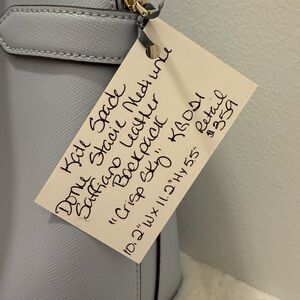 Kate Spade
Dome Stacie Medium
Saffiano Leather
Backpack KA051
"Crisp Sky" Retail
10.2"W x 11.2"H x 5.5" $359